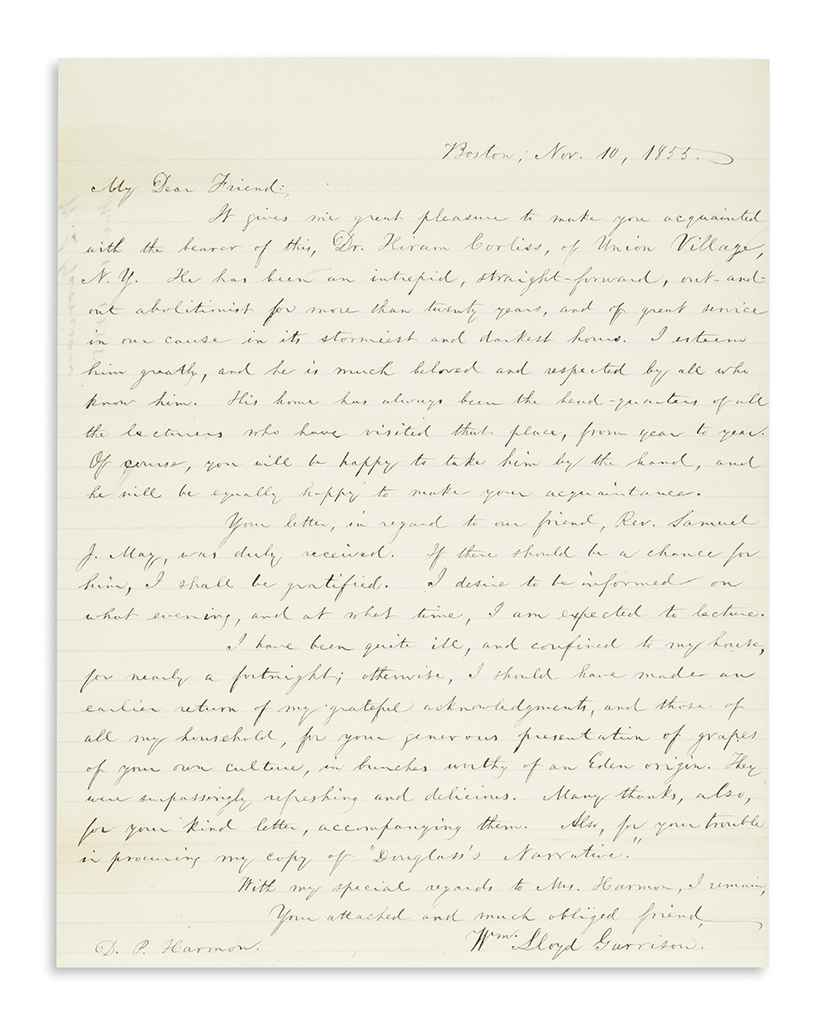 Boston, Nov. 10, 1855.
My Dear Friend:
It gives me great pleasure to make you acquainted
with the bearer of this, Dr. Hiram Corliss, of Union Village,
N. Y. He has been an intrepid, straight-forward, out-and-
out abolitionist for more than twenty years, and of great service
in our cause in its stormiest and darkest hours. I esteem
him greatly, and he is much beloved and respected by all who
know him. His home has always been the head-quarters of all
the lecturers who have visited that place, from year to year.
Of course, you will be happy to take him by the hand, and
he will be equally happy to make your acquaintance.
Your letter, in regard to our friend, Rev. Samuel
J. May, was duly received. If there should be a chance for
him, I shall be gratified. I desire to be informed on
what evening, and at what time, I am expected to lecture.
I have been quite ill, and confined to my house,
for nearly a fortnight; otherwise, I should have made an
earlier return of my grateful acknowledgments, and those of
all my household, for your generous presentation of grapes
of your own culture, in bunches worthy of an Eden origin. They
were surpassingly refreshing and delicious. Many thanks, also,
for your kind letter, accompanying them. Also, for your trouble
in procuring my copy of "Douglass's Narrative."
With my special regards to Mrs. Harmon, I remain,
Your attached and much obliged friend,
Wm. Lloyd Garrison.
D. P. Harmon.